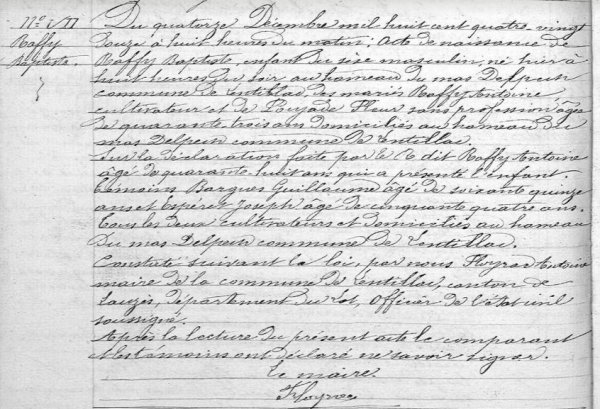 N° 
Raffy
Baptiste
Du quatorze Décembre mil huit cent quatre-vingt
douze à huit heures du matin; Acte de naissance de
Raffy Baptiste, enfant du sixe masculin, né hier à
huit heures du soir au hameau du mas Delpech
commune de Sentillac, du mariés Raffy Antoine
cultivateur et de Pujade Fleur sans profession âgée
de quarante trois ans domiciliés au hameau du
mas Delpech commune de Lentillac.
Sur la déclaration faite par le dit Raffy Antoine
âgé de quarante huit ans qui a présenté l'enfant.
Témoins Bargues Guillaume âgé de soixante quinze
ans et Espéret Joseph âgé de cinquante quatre ans.
Tous les deux cultivateurs et domiciliés au hameau
du mas Delpech commune de Lentillac.
Constaté suivant la loi, par nous Floyrac Antoine
maire de la commune de Lentillac, canton de
Lauzès, département du Lot, Officier de l'état civil
soussigné.
Après la lecture du présent acte le comparant
et les témoins ont déclaré ne savoir signer.
Le maire.
Floyrac